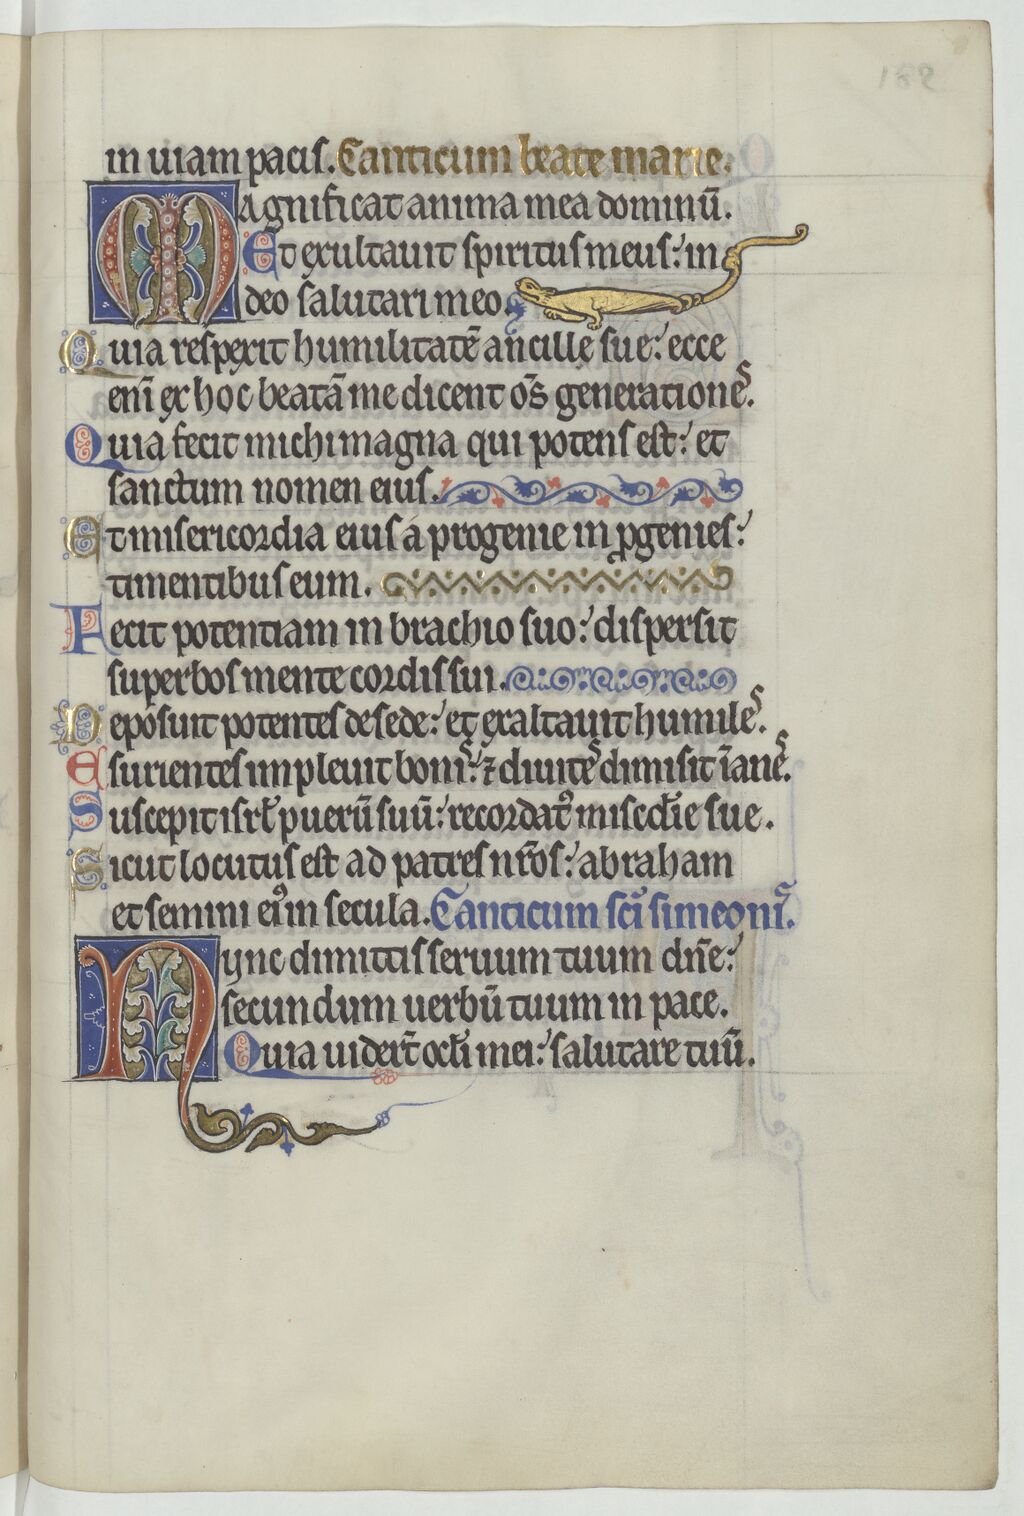 182
in uiam pacis. Canticum beate marie.
Magnificat anima mea dominū.
Et exultauit spiritus meus: in
deo salutari meo.
Quia respexit humilitatē ancillę sue: ecce
eni̅ ex hoc beatā me dicent om̅s generationes.
Quia fecit michi magna qui potens est: et
sanctum nomen eius.
Et misericordia eius á progenie in ꝓgenies:
timentibus eum.
Fecit potentiam in brachio suo: dispersit
superbos mente cordis sui.
Deposuit potentes de sede: et exaltauit humiles.
Esurientes impleuit bonis: ⁊ diuites dimisit īanes.
Suscepit isrł puerū suū: recordatꝰ misc̅die sue.
Sicut locutus est ad patres nr̅os: abraham
et semini eiꝰ in secula. Canticum sc̅i simeonis.
Nunc dimittis seruum tuum dn̅e:
secundum uerbū tuum in pace.
Quia uider̅t oc̅li mei: salutare tuū.